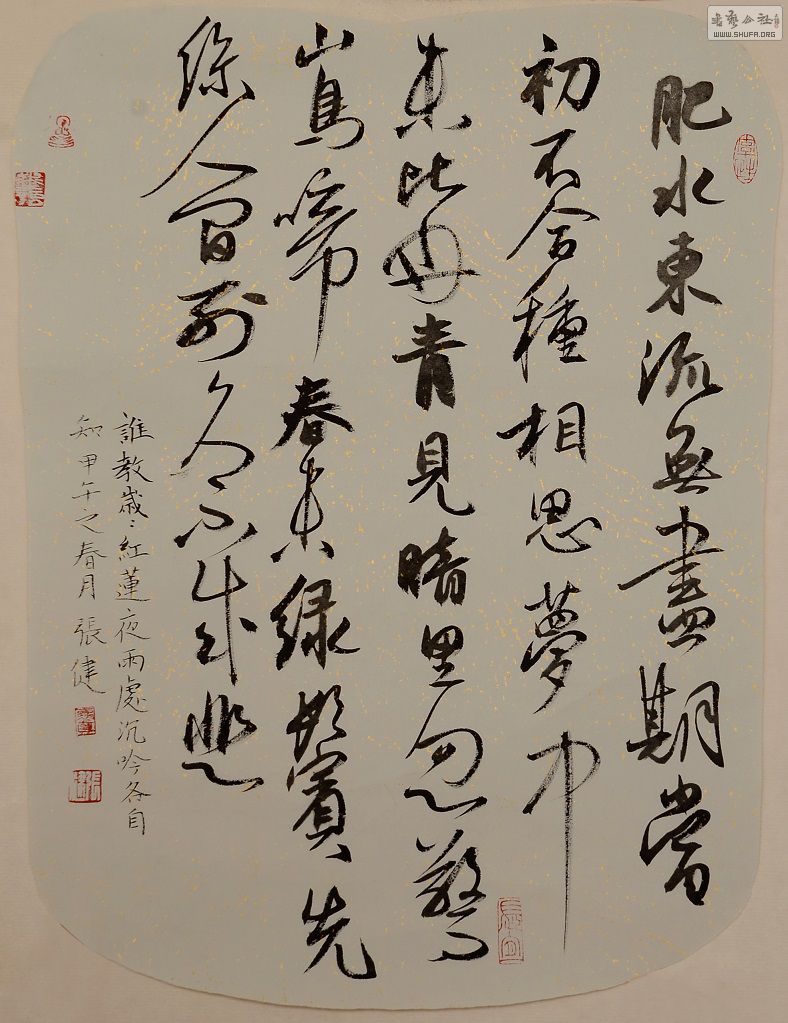 肥水東流無盡期當
初不合種相思夢中
未比丹青見暗里忽驚
山鳥啼春未綠鬢先
絲人間別久不成悲
誰教歲〻紅蓮夜兩處沉吟各自
知甲午之春月張健
書藝公社
WWW.SHUFA.ORG